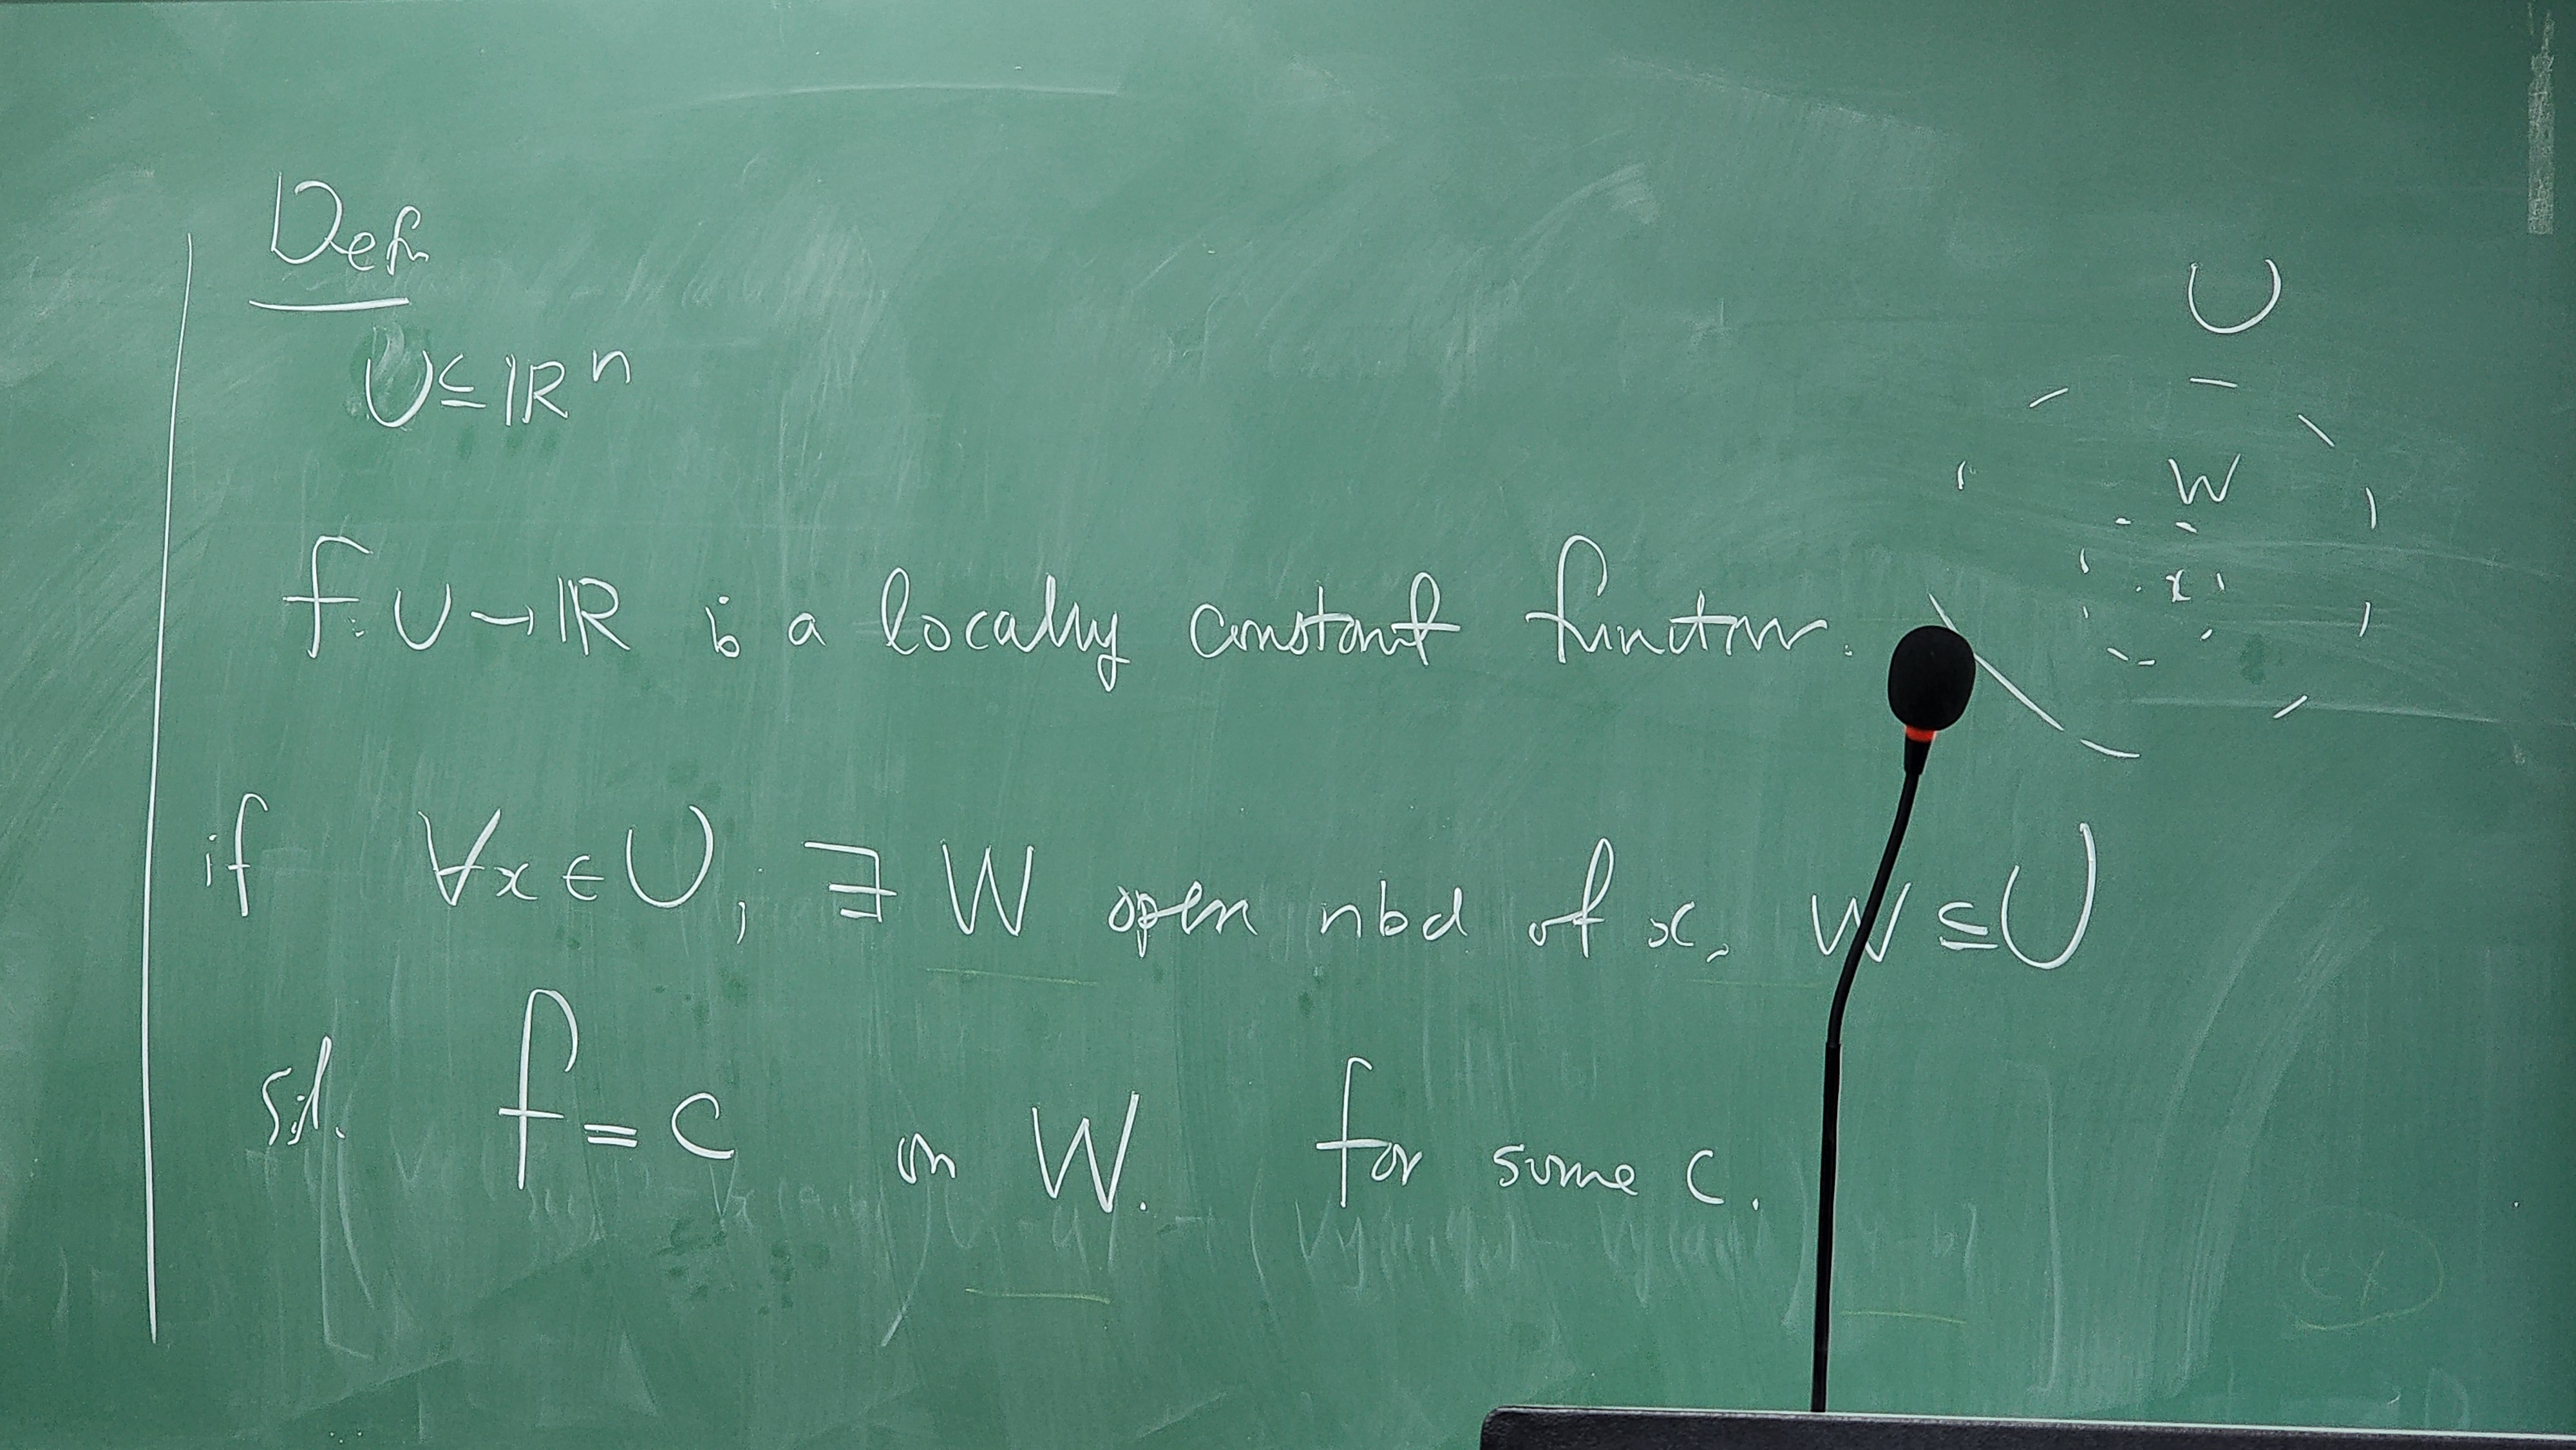 Defn
U ⊆ ℝⁿ
f: U → ℝ is a locally constant function.
if ∀x ∈ U, ∃ W open nbd of x, W ⊆ U
s.t. f = c on W. for some c.
U
W
x